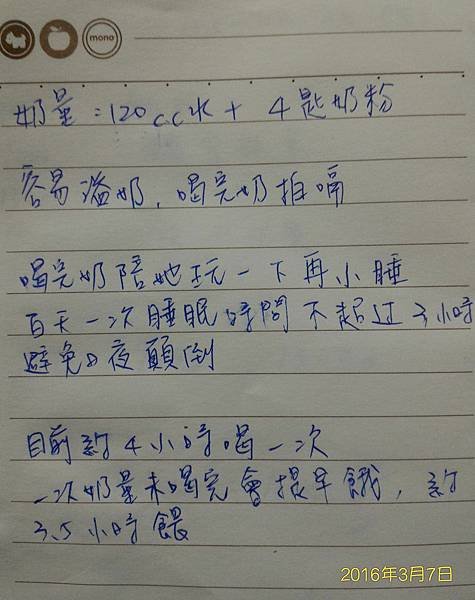 mono
奶量:120cc水+ 4匙奶粉
容易溢奶,喝完奶拍嗝
喝完奶陪她玩一下再小睡
百天一次睡眠時間不超过3小時
避免日夜顛倒
目前約4小時喝一次
一次奶量未喝完會提早餓,約
3.5小時餵
2016年3月7日